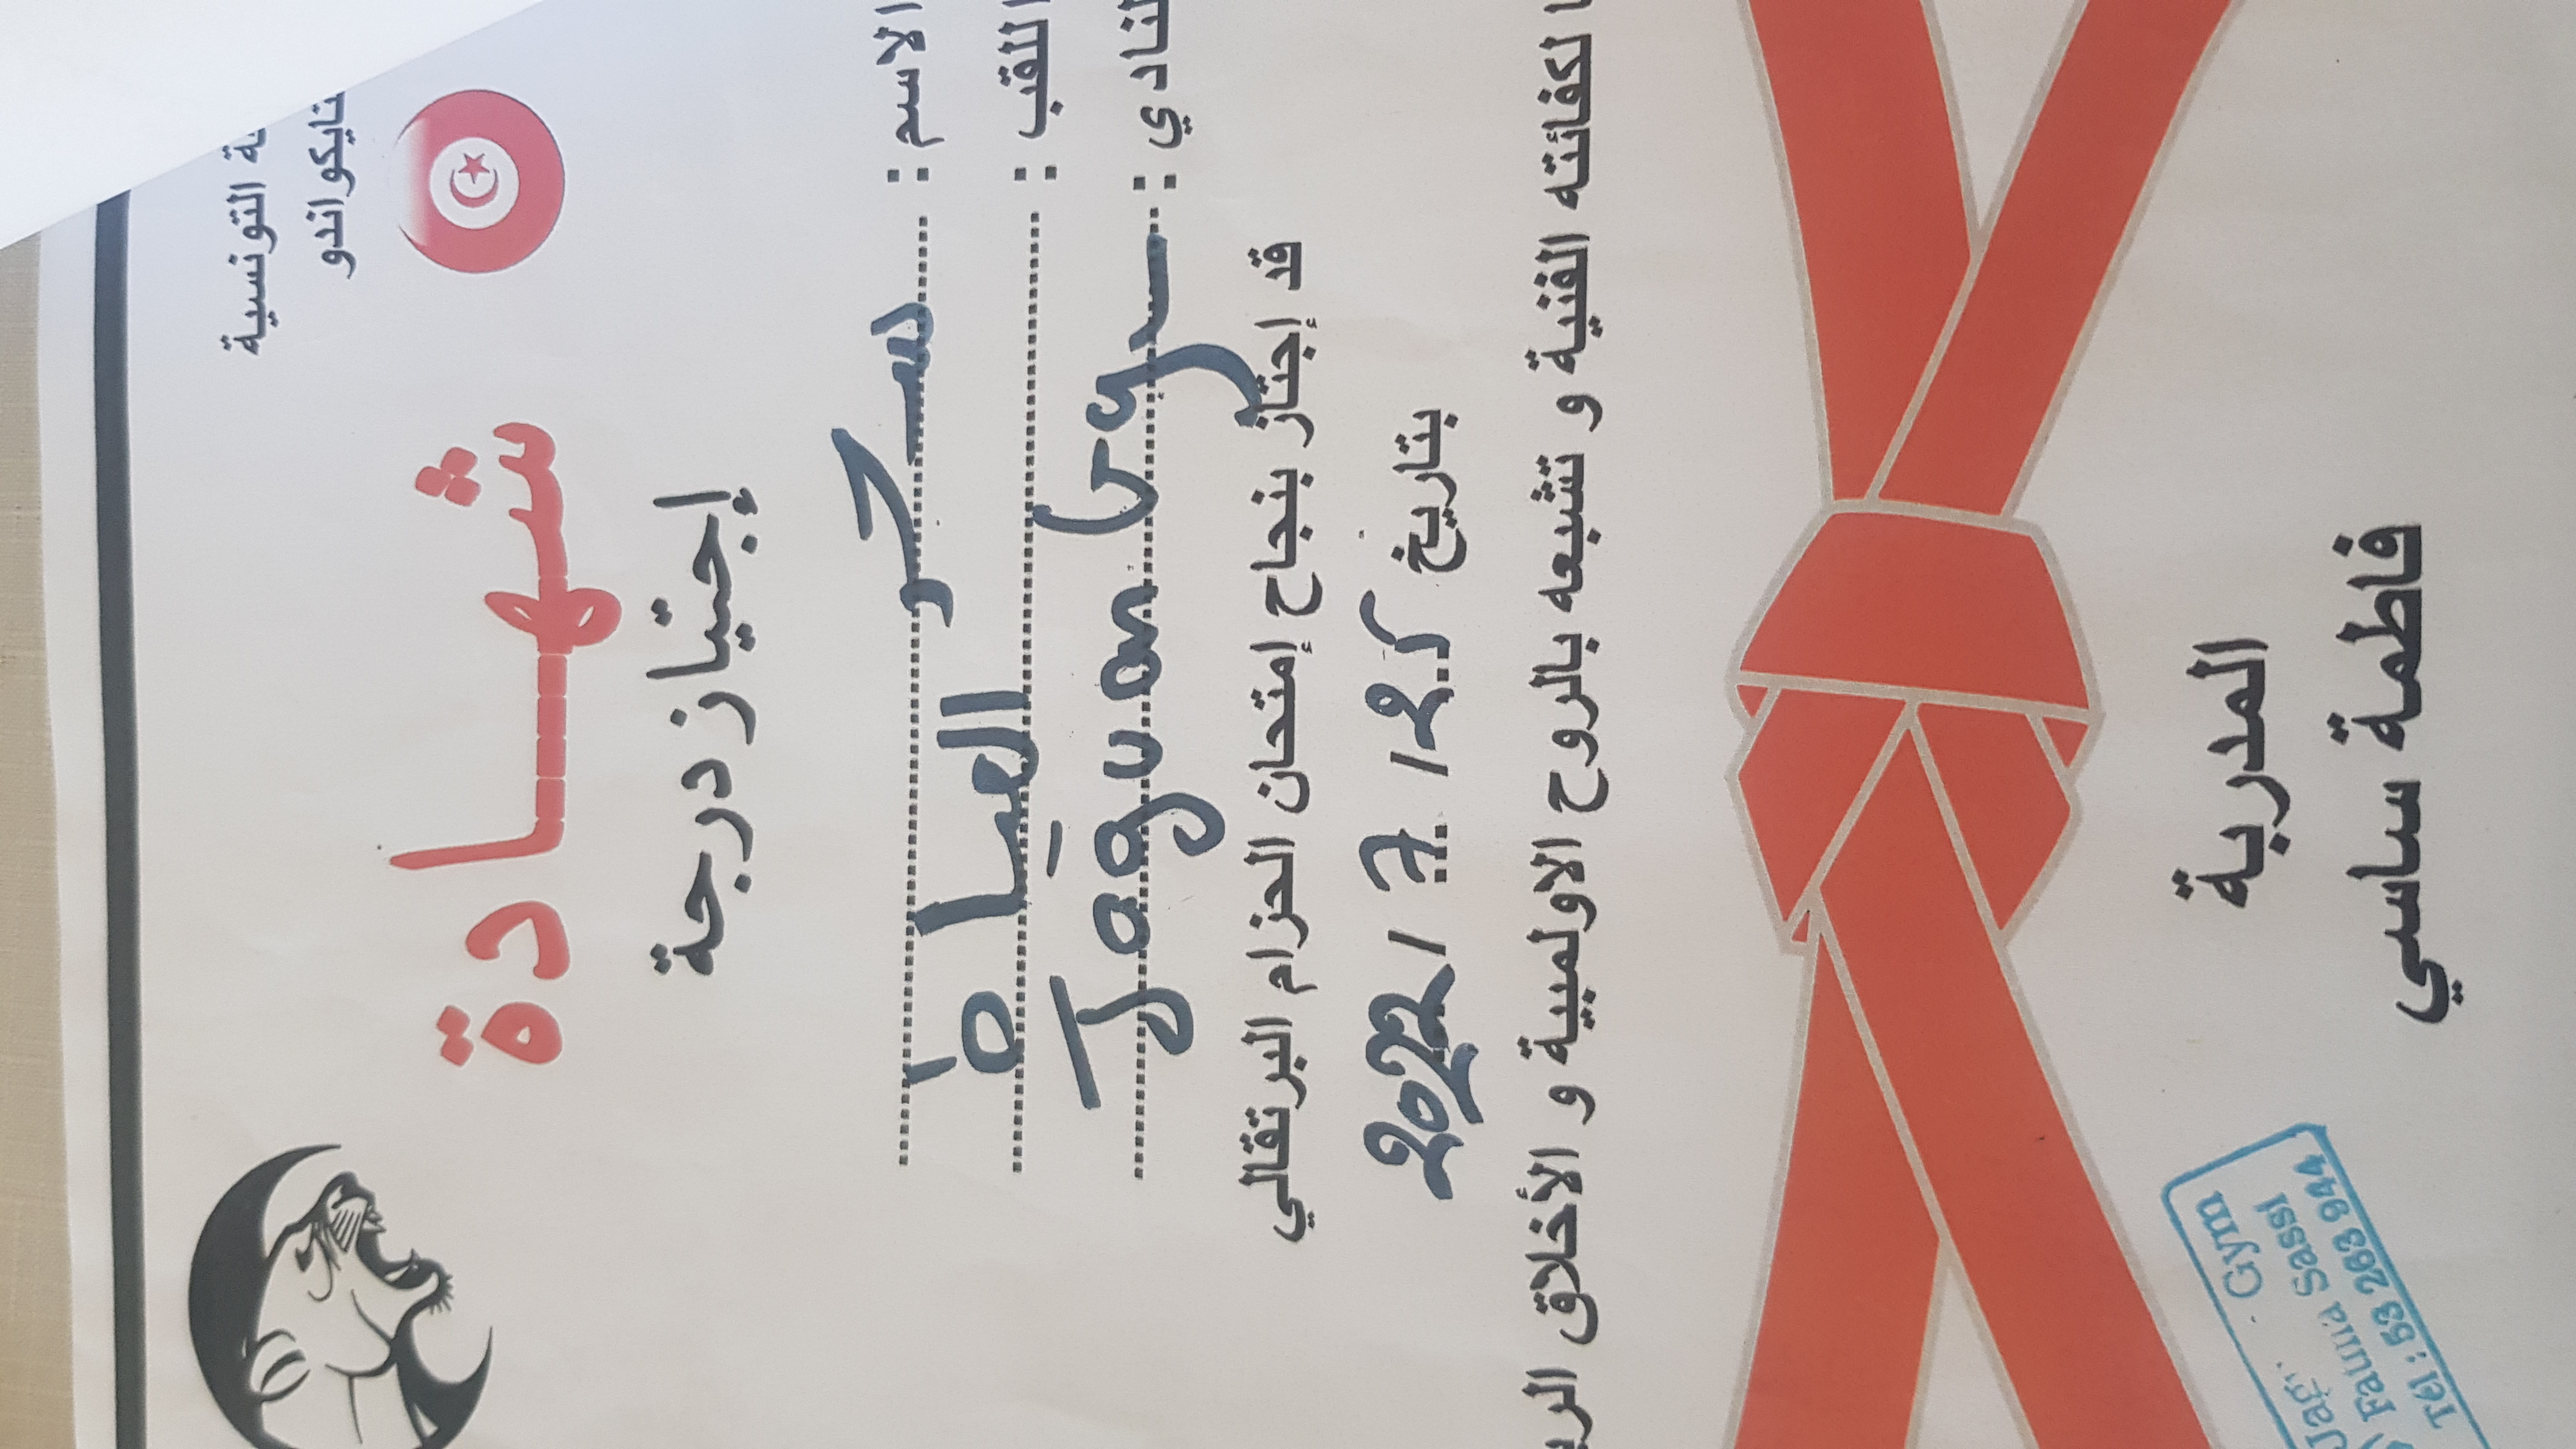 ة التونسية
تايكواندو
شهادة
إجتياز درجة
الاسم : سحر
اللقب :
النادي : Jaguar Gym
قد إجتاز بنجاح إمتحان الحزام البرتقالي
بتاريخ
2022 / 7 /
لكفائته الفنية و تشبعه بالروح الاولمبية و الأخلاق الري
المدربة
فاطمة ساسي
Jag Gym
Fatma Sassi
Tél : 53 263 944